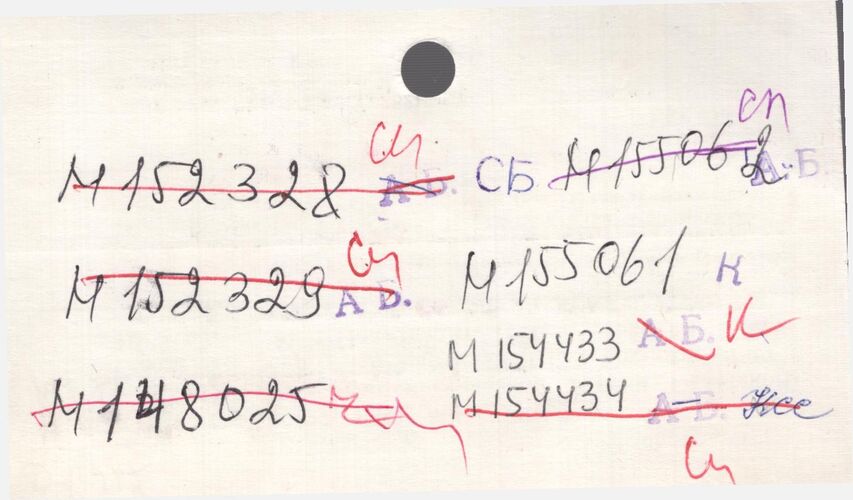 М 152328 Сп А Б. СБ
М 152329 Сп А Б.
М 148025
М 155062 сп А.Б.
М 155061 к
М 154433 А Б. К
М 154434 А-Б.
Сп